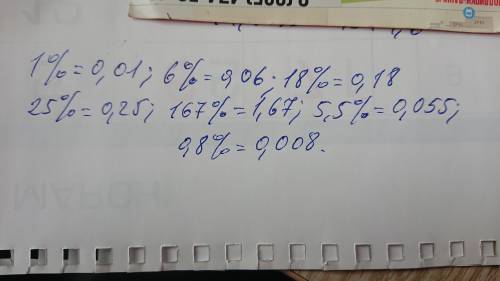 1% = 0,01; 6% = 0,06. 18% = 0,18
25% = 0,25; 167% = 1,67; 5,5% = 0,055;
0,8% = 0,008.